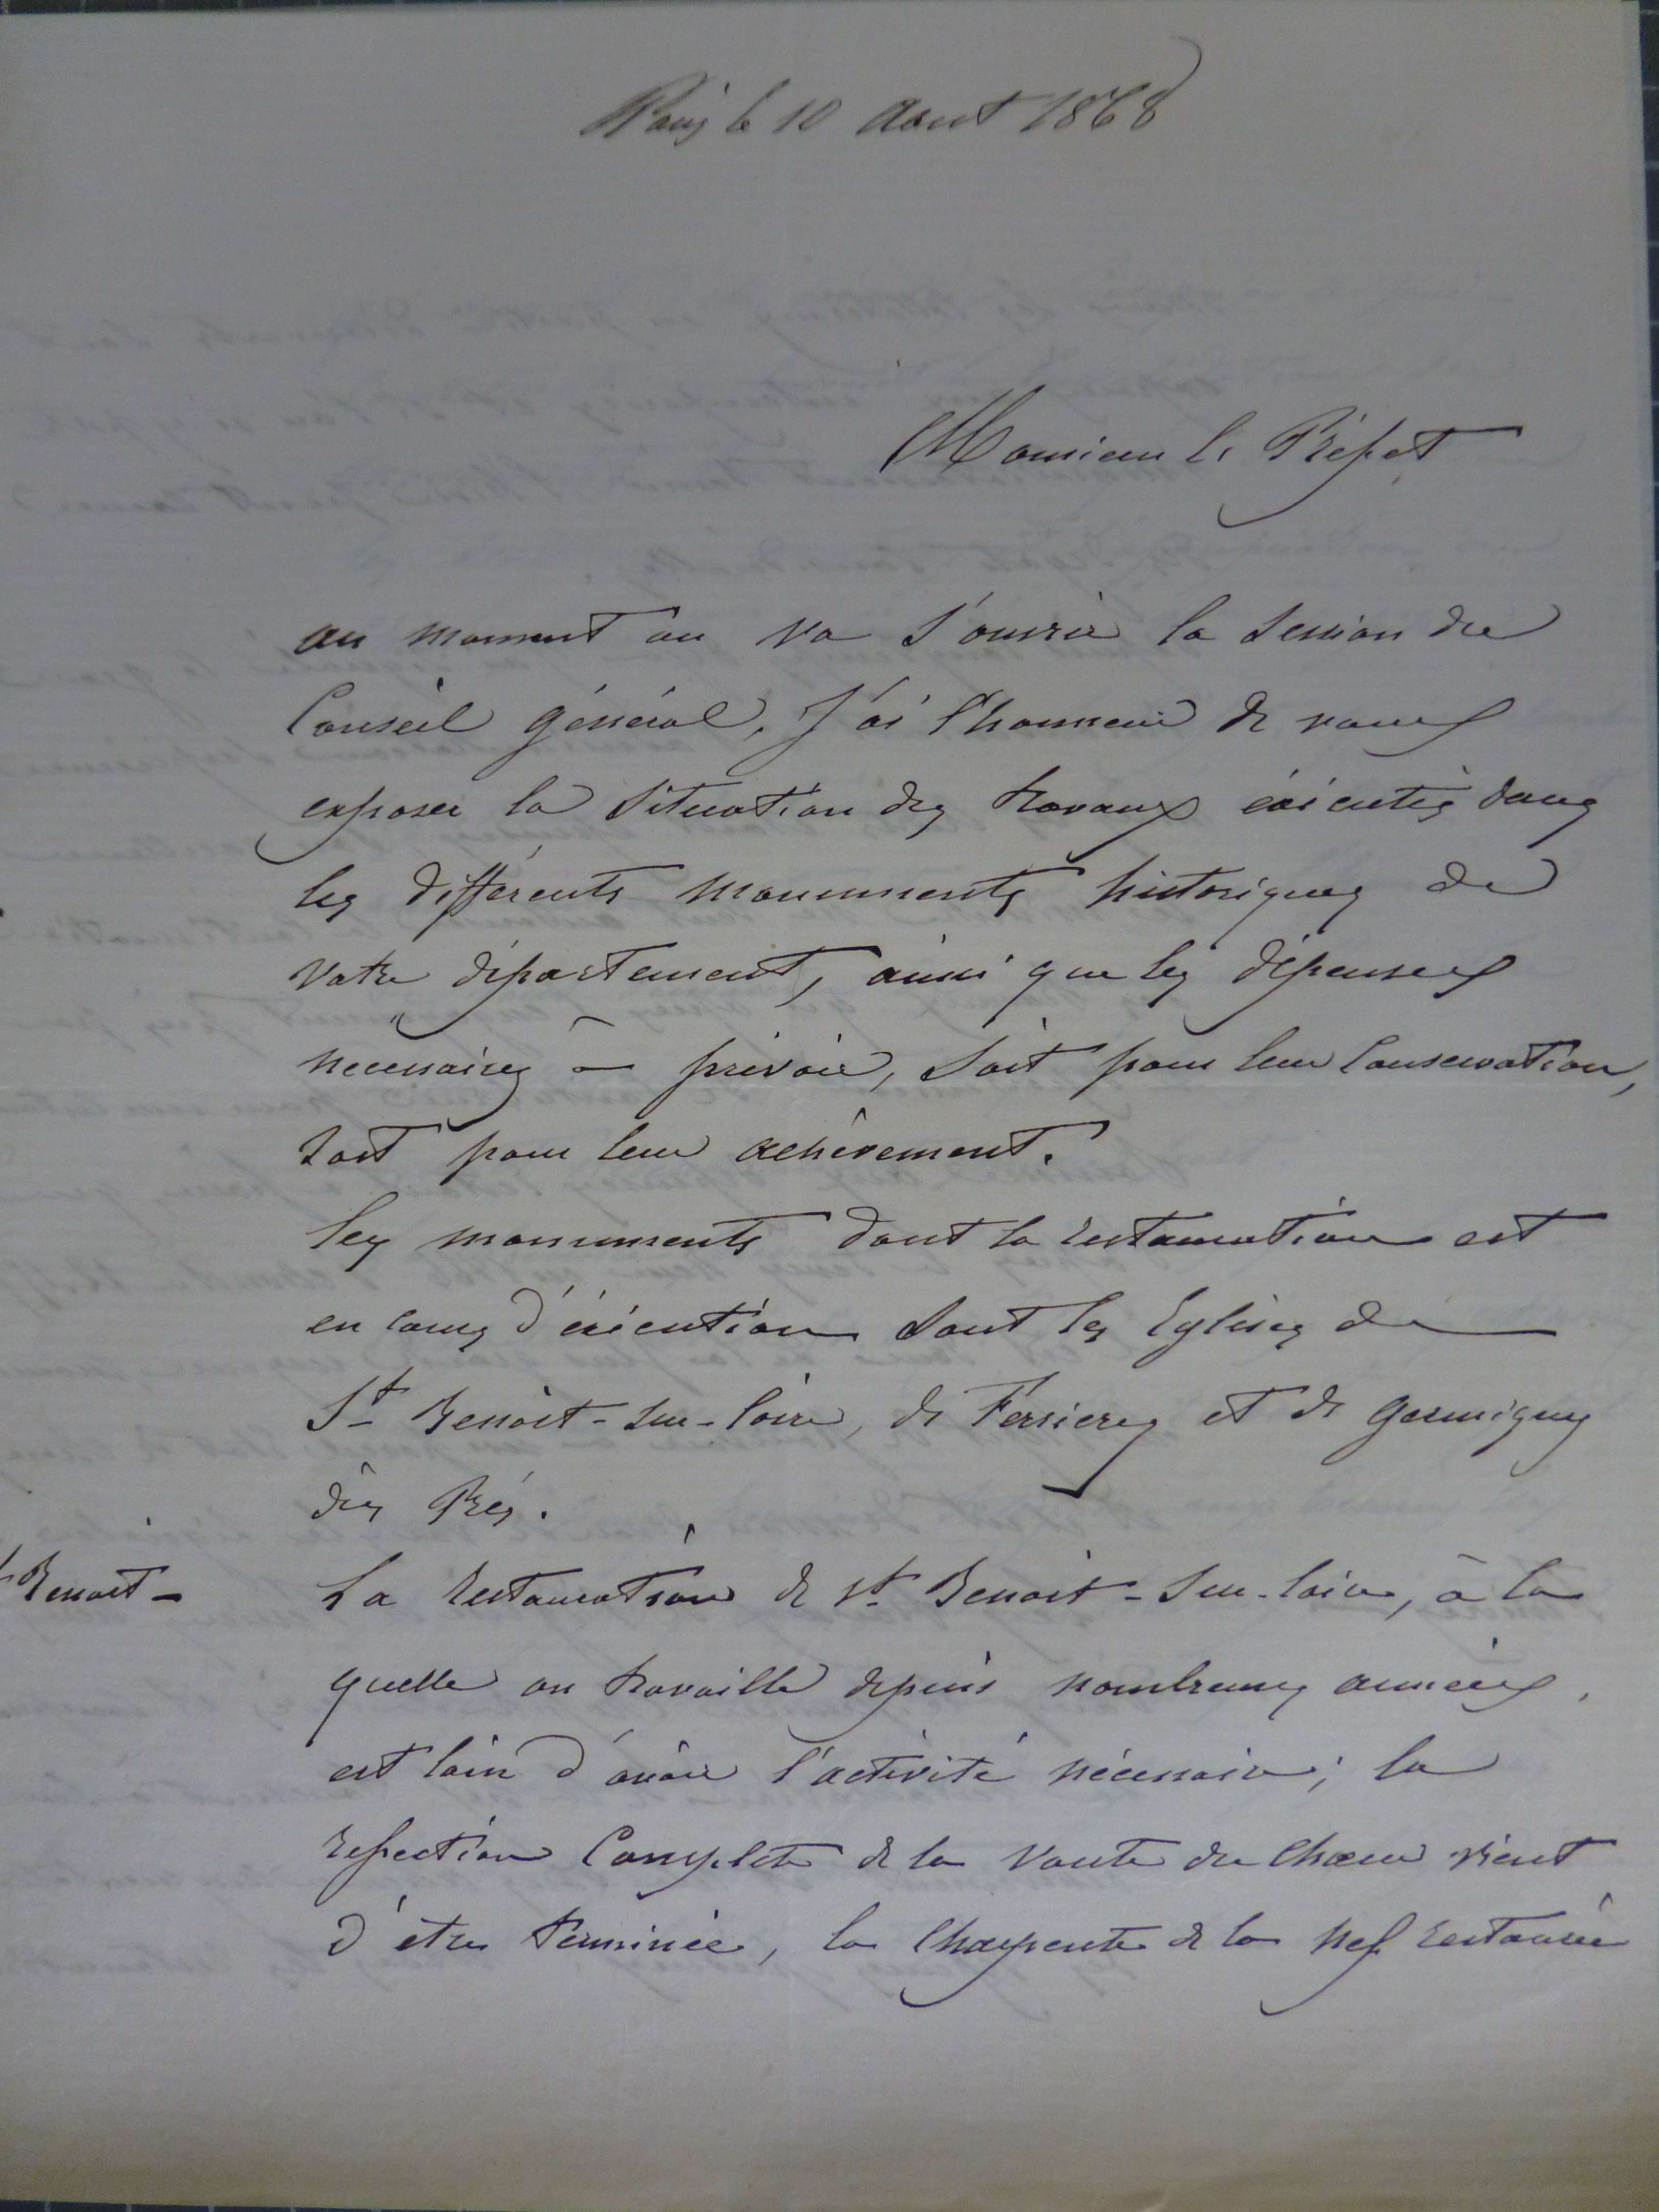 Paris le 10 Aout 1868
Monsieur le Préfet
au moment où va s'ouvrir la session du
Conseil général, J'ai l'honneur de vous
exposer la situation des travaux éxécutés dans
les différents monuments historiques de
votre département, ainsi que les dépenses
necessaires à prévoir, soit pour leur Conservation,
soit pour leur achèvement.
les monuments dont la restauration est
en cours d'éxécution sont les Eglises de
St Benoit-sur-loire, de Ferrieres et de germigny
des Prés.
St Benoit -
La restauration de St Benoit-sur-loire, à la
quelle on travaille depuis nombreuses années,
est loin d'avoir l'activité nécessaire; la
refection Complete de la voute du Choeur vient
d'étre terminée, la Charpente de la nef restaurée